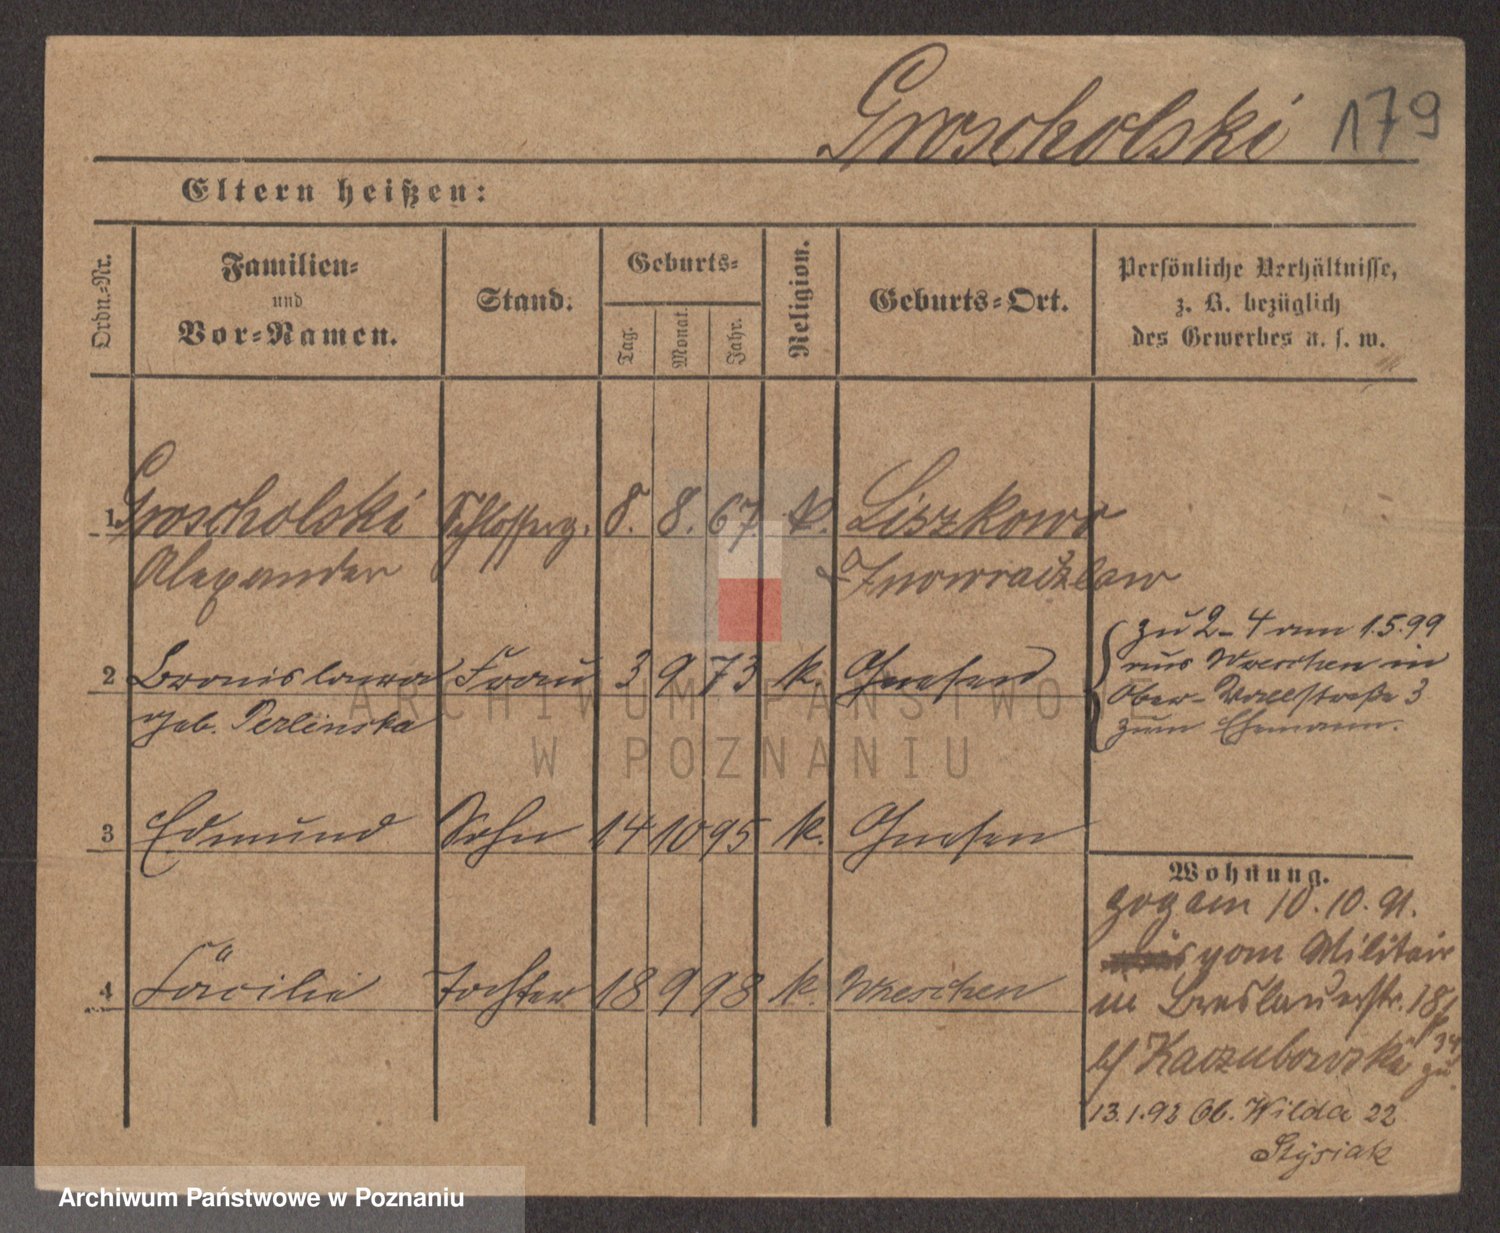 Groscholski 179
Eltern heißen:
Ordn.-Nr.
Familien-
und
Vor-Namen.
Stand.
Geburts-
Tag.
Monat.
Jahr.
Religion.
Geburts-Ort.
Persönliche Verhältnisse,
z. B. bezüglich
des Gewerbes u. s. w.
1 Groscholski Schlosserg. 8. 8. 67. k. Liszkowo
Alexander Inowrazlaw
zu 2-4 am 1.5.99
aus Wreschen in
Ober-Wallstraße 3
zum Ehemann.
2 Bronislawa Frau 3 9 73 k. Gnesen
geb. Perlinska
3 Edmund Sohn 14 10 95 k. Gnesen
Wohnung.
zog am 10.10.91.
vom Militair
in Breslauerstr. 18
b/ Kaczubowski zu.
4 Cäcilie Tochter 18 9 98 k. Wreschen
13.1.92 Ob. Wilda 22
Stysiak
ARCHIWUM PAŃSTWOWE
W POZNANIU
Archiwum Państwowe w Poznaniu